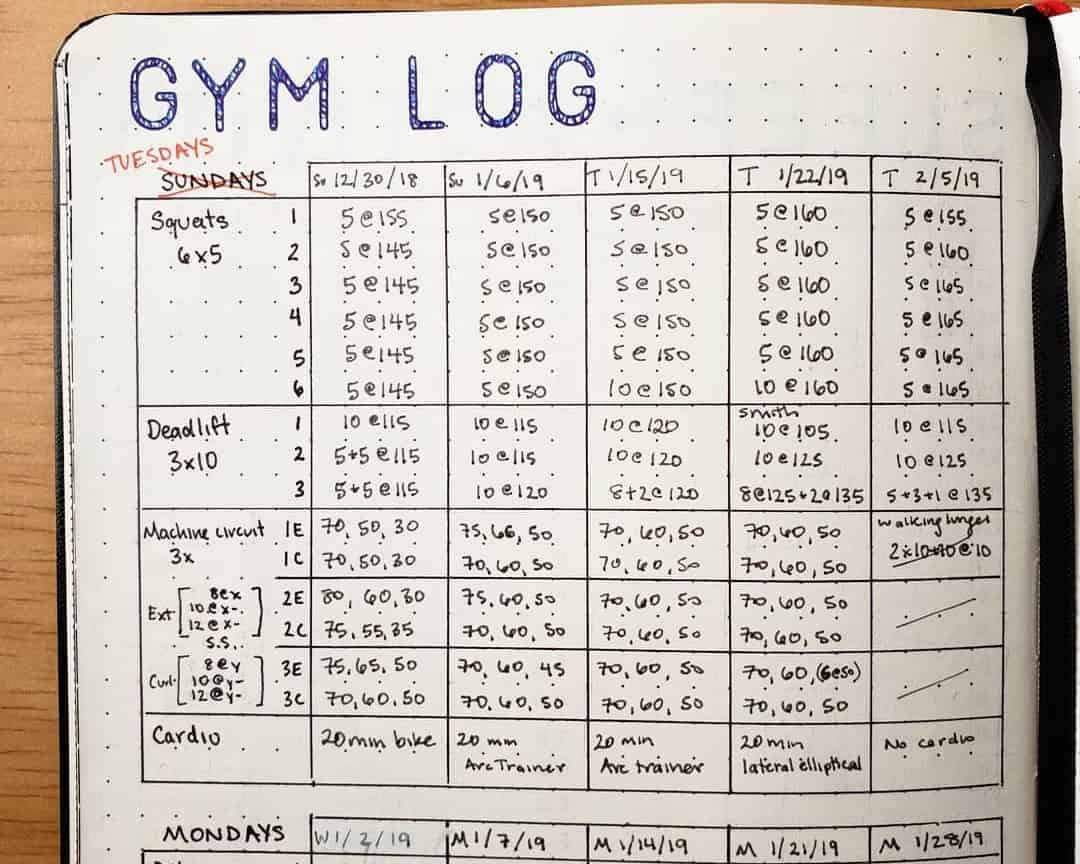 GYM LOG
TUESDAYS
SUNDAYS Su 12/30/18 Su 1/6/19 T 1/15/19 T 1/22/19 T 2/5/19
Squats 1 5@155 5@150 5@150 5@160 5@155
6x5 2 5@145 5@150 5@150 5@160 5@160
3 5@145 5@150 5@150 5@160 5@165
4 5@145 5@150 5@150 5@160 5@165
5 5@145 5@150 5@150 5@160 5@165
6 5@145 5@150 10@150 10@160 5@165
smith
Deadlift 1 10@115 10@115 10@120 10@105 10@115
3x10 2 5+5@115 10@115 10@120 10@125 10@125
3 5+5@115 10@120 8+2@120 8@125+2@135 5+3+1@135
Machine circuit 1E 70, 50, 30 75, 65, 50 70, 60, 50 70, 60, 50 walking lunges
3x 1C 70, 50, 30 70, 60, 50 70, 60, 50 70, 60, 50 2x10 @10
Ext 8@x 2E 80, 60, 30 75, 60, 50 70, 60, 50 70, 60, 50
10@x-
12@x- 2C 75, 55, 35 70, 60, 50 70, 60, 50 70, 60, 50
S.S.
Curl 8@y 3E 75, 65, 50 70, 60, 45 70, 60, 50 70, 60,
10@y-
12@y- 3C 70, 60, 50 70, 60, 50 70, 60, 50 70, 60, 50
Cardio 20 min bike 20 min 20 min 20 min No cardio
Arc Trainer Arc trainer lateral elliptical
MONDAYS W 1/2/19 M 1/7/19 M 1/14/19 M 1/21/19 M 1/28/19